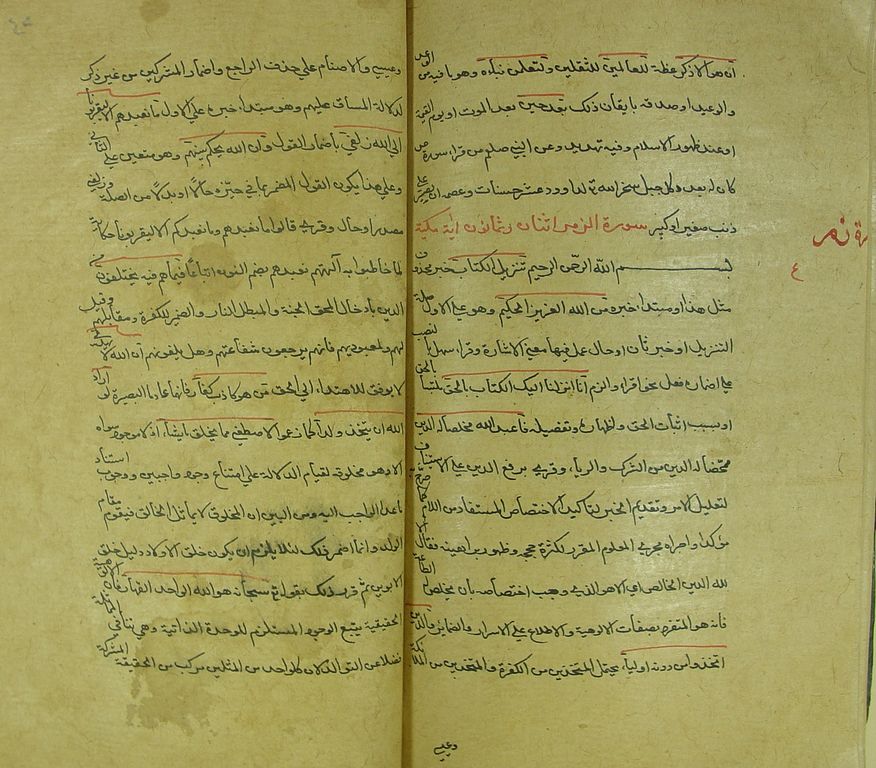 ان هو الا ذكر عظة للعالمين للثقلين ولتعلمن نباه وهو ما فيه من الوعد
والوعيد او صدقه باتيان ذلك بعد حين بعد الموت او يوم القيمة
او عند ظهور الاسلام وفيه تهديد وعن النبي صلعم من قراء سورة ص
كان له بعدد كل جبل سخر الله تع لداود عشر حسنات وعصمه ان يصر على
ذنب صغير او كبير سورة الزمر اثنان وثمانون اية مكية
بسم الله الرحمن الرحيم تنزيل الكتاب خبر محذوف
مثل هذا او مبتداء خبره من الله العزيز الحكيم وهو على الاول صلة
التنزيل او خبر ثان او حال عمل فيها معنى الاشارة وقراء بالنصب
على اضمار فعل نحو اقراء والزم انا انزلنا اليك الكتاب بالحق ملتبسا بالحق
او بسبب اثبات الحق واظهاره وتفصيله فاعبد الله مخلصا له الدين
ممحضا له الدين من الشرك والرياء وقرئ برفع الدين على الاستيناف
لتعليل الامر وتقديم الخبر لتاكيد الاختصاص المستفاد من اللام كما صرح به
مؤكدا واجراه مجرى المعلوم المقرر لكثرة حججه وظهور براهينه فقال الا
لله الدين الخالص اي الا هو الذي وجب اختصاصه بان يخلص له الطاعة
فانه هو المتفرد بصفات الالوهية والاطلاع على الاسرار والضمائر والذين
اتخذوا من دونه اولياء يحتمل المتخذين من الكفرة والمتخذين من الملائكة
وعيسى
وعيسى والاصنام على حذف الراجع واضمار المشركين من غير ذكر
لدلالة المساق عليهم وهو مبتداء خبره على الاول ما نعبدهم الا ليقربونا
الى الله زلفى باضمار القول وان الله يحكم بينهم وهو متعين على الثاني
وعلى هذا يكون القول المضمر بما في حيزه حالا او بدلا من الصلة وزلفى
مصدر او حال وقرئ قالوا ما نعبدهم وما نعبدكم الا ليقربونا حكاية
لما خاطبوا به آلهتهم ونعبدهم بضم النون اتباعا فيما هم فيه يختلفون من
الدين بادخال المحق الجنة والمبطل النار والضمير للكفرة ومقابليهم وقيل
لهم ولمعبوديهم فانهم يرجون شفاعتهم وهم يلعنونهم ان الله لا يهدي
لا يوفق للاهتداء الى الحق من هو كاذب كفار فانهما عادما البصيرة لو اراد
الله ان يتخذ ولدا كما زعموا لاصطفى مما يخلق ما يشاء اذ لا موجود سواه
الا وهو مخلوقه لقيام الدلالة على امتناع وجود واجبين ووجوب استناد
ما عدا الواجب اليه ومن البين ان المخلوق لا يماثل الخالق فيقوم مقام
الولد له وانما اضمر ذلك لئلا يلزم ان يكون خلق الاولاد دليل خلق
الابوين ثم قرر ذلك بقوله تع سبحانه هو الله الواحد القهار فان الالوهية
الحقيقية يتبع الوجود المستلزم للوحدة الذاتية وهي ينافي المماثلة
فضلا عن التوالد لان كل واحد من المثلين مركب من الحقيقة المشتركة